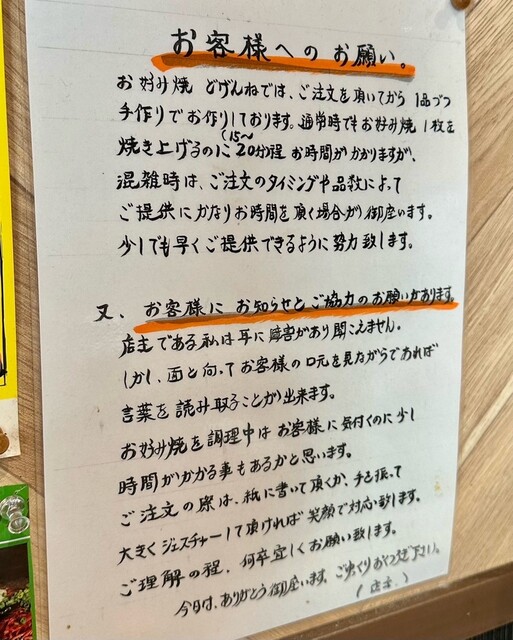 お客様へのお願い。
お好み焼 どげんねでは、ご注文を頂いてから 1品づつ
手作りでお作りしております。通常時でもお好み焼 1枚を
(15〜
焼き上げるのに20分程 お時間がかかりますが、
混雑時は、ご注文のタイミングや品数によって
ご提供にかなりお時間を頂く場合が御座います。
少しでも早くご提供できるように努力致します。
又、お客様に お知らせと ご協力のお願いがあります。
店主である私は耳に障害があり聞こえません。
しかし、面と向ってお客様の口元を見ながらであれば
言葉を読み取ることが出来ます。
お好み焼を調理中はお客様に気付くのに少し
時間がかかる事もあるかと思います。
ご注文の際は、紙に書いて頂くか、手を振って
大きくジェスチャーして頂ければ笑顔で対応致します。
ご理解の程、何卒宜しくお願い致します。
今日は、ありがとう御座います。ごゆっくりおくつろぎ下さい。
(店主)